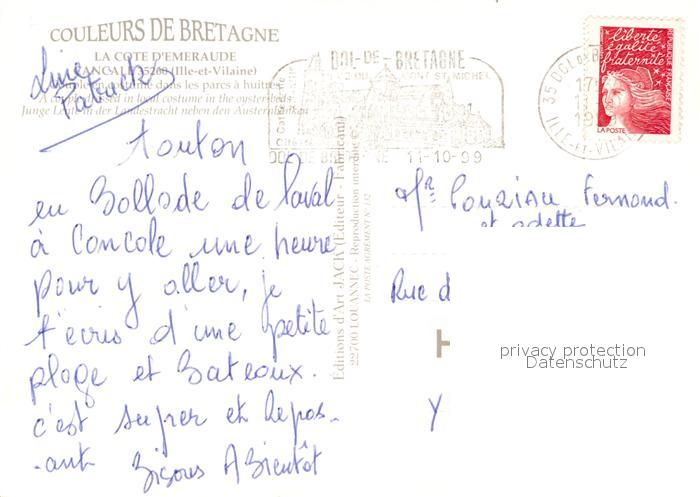 COULEURS DE BRETAGNE
LA COTE D'EMERAUDE
(Ille-et-Vilaine)
dans les parcs à huîtres
in local costume in the oysterbeds
in der Landestracht neben den Austernbänken
Line
Patrick
touton
en Ballade de Laval
à Concole une heure
pour y aller, je
t'écris d'une petite
plage et Bateaux.
c'est super et Repos-
-ant Bisous A Bientôt
Editions d'Art JACK (Editeur - Fabricant)
22700 LOUANNEC - Reproduction interdite
LA POSTE AGREMENT N° 132
DOL-DE-BRETAGNE
MONT ST MICHEL
11-10-99
35 DOL DE B
ILLE-ET-VILAINE
liberté
égalité
fraternité
RÉPUBLIQUE FRANÇAISE
LA POSTE
Mr Fernand.
et odette
Rue d
H
Y
privacy protection
Datenschutz